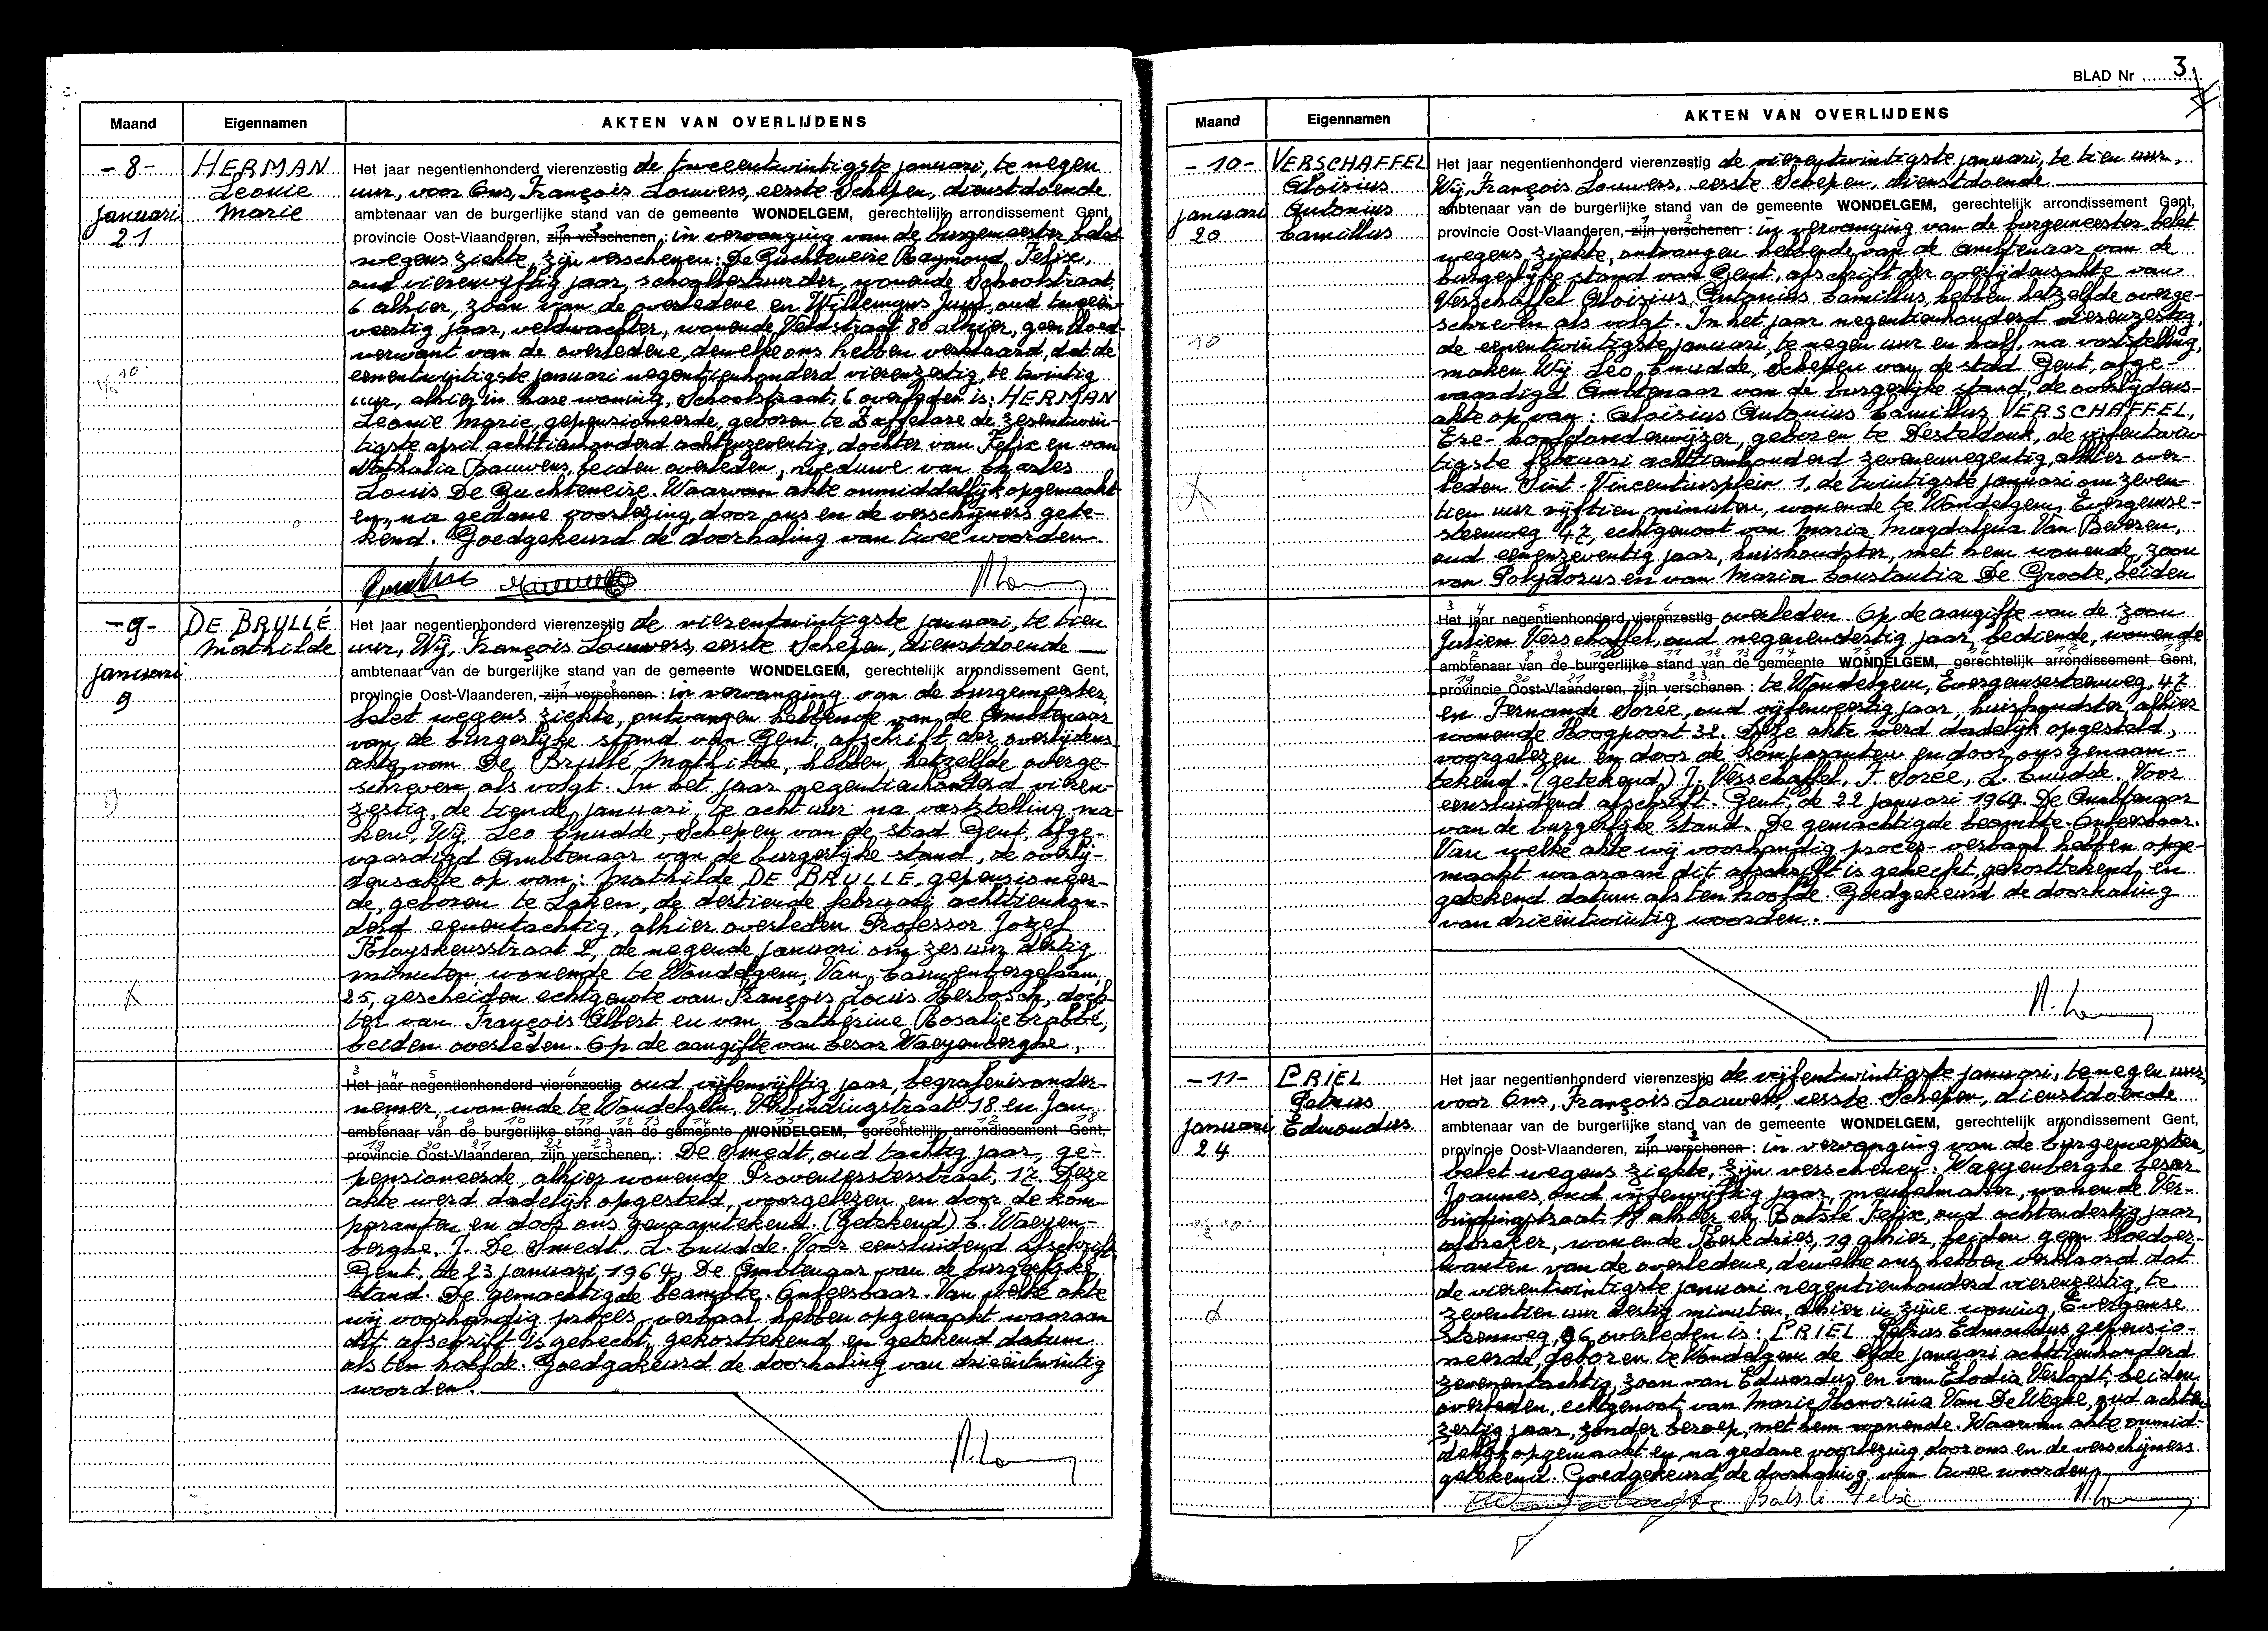 Maand
Eigennamen
AKTEN VAN OVERLIJDENS
-8-
januari
21
HERMAN
Leonie
Marie
Het jaar negentienhonderd vierenzestig de tweeentwintigste januari, te negen
uur, voor Ons, François Louwers, eerste Schepen, dienstdoende
ambtenaar van de burgerlijke stand van de gemeente WONDELGEM, gerechtelijk arrondissement Gent,
provincie Oost-Vlaanderen, zijn verschenen : in vervanging van de burgemeester belet
wegens ziekte, zijn verschenen: De Guchteneire Raymond, Felix,
oud vierenvijftig jaar, schoolbestuurder, wonende Schoolstraat
6 alhier, zoon van de overledene en Willemyns Juul, oud tweeën-
veertig jaar, veldwachter, wonende Veldstraat 80 alhier, geen bloed-
verwant van de overledene, dewelke ons hebben verklaard, dat de
eenentwintigste januari negentienhonderd vierenzestig, te twintig
uur, alhier in hare woning, Schoolstraat, 6 overleden is: HERMAN
Leonie Marie, gepensioneerde, geboren te Zaffelare de zesentwin-
tigste april achttienhonderd achtenzeventig, dochter van Felix en van
Nathalia Bauwens, beiden overleden, weduwe van Charles
Louis De Guchteneire. Waarvan akte onmiddellijk opgemaakt
en, na gedane voorlezing, door ons en de verschijners gete-
kend. Goedgekeurd de doorhaling van twee woorden
-9-
januari
9
DE BRULLÉ
Mathilde
Het jaar negentienhonderd vierenzestig de vierentwintigste januari, te tien
uur, Wij, François Louwers, eerste Schepen, dienstdoende
ambtenaar van de burgerlijke stand van de gemeente WONDELGEM, gerechtelijk arrondissement Gent,
provincie Oost-Vlaanderen, zijn verschenen : in vervanging van de burgemeester,
belet wegens ziekte, ontvangen hebbende van de Ambtenaar
van de burgerlijke stand van Gent, afschrift der overlijdens-
akte van De Brullé Mathilde, hebben hetzelfde overge-
schreven als volgt. In het jaar negentienhonderd vieren-
zestig, de tiende januari, te acht uur na vaststelling ma-
ken, Wij, Leo Cnudde, Schepen van de stad Gent, afge-
vaardigd Ambtenaar van de burgerlijke stand, de overlij-
densakte op van: Mathilde DE BRULLÉ, gepensioneer-
de, geboren te Laken, de dertiende februari achttienhon-
derd eenentachtig, alhier overleden Professor Jozef
Kluyskensstraat 2, de negende januari om zes uur dertig
minuten, wonende te Wondelgem, Van Cauwenbergelaan,
25, gescheiden echtgenote van François Louis Herbosch, doch-
ter van François Albert en van Cathérine Rosalie Crabbé,
beiden overleden. Op de aangifte van Cesar Waeyenberghe,
Het jaar negentienhonderd vierenzestig oud vijfenvijftig jaar, begrafenisonder-
nemer, wonende te Wondelgem, Verbindingstraat 18 en Jan
ambtenaar van de burgerlijke stand van de gemeente WONDELGEM, gerechtelijk arrondissement Gent,
provincie Oost-Vlaanderen, zijn verschenen, : De Smedt, oud tachtig jaar, ge-
pensioneerde, alhier wonende Proveniersterstraat, 17. Deze
akte werd dadelijk opgesteld, voorgelezen en door de kom-
paranten en door ons genaamtekend. (Getekend) C. Waeyen-
berghe, J. De Smedt, L. Cnudde. Voor eensluidend afschrift
Gent, de 23 januari 1964. De Ambtenaar van de burgerlijke
stand. De gemachtigde beambte. Onleesbaar. Van welke akte
wij voorhandig proces-verbaal hebben opgemaakt waaraan
dit afschrift is gehecht, gekorttekend, en getekend datum
als ten hoofde. Goedgekeurd de doorhaling van drieëntwintig
woorden.
BLAD Nr 3
Maand
Eigennamen
AKTEN VAN OVERLIJDENS
-10-
januari
20
VERSCHAFFEL
Aloisius
Antonius
Camillus
Het jaar negentienhonderd vierenzestig de vierentwintigste januari, te tien uur,
Wij, François Louwers, eerste Schepen, dienstdoende
ambtenaar van de burgerlijke stand van de gemeente WONDELGEM, gerechtelijk arrondissement Gent,
provincie Oost-Vlaanderen, zijn verschenen : in vervanging van de burgemeester belet
wegens ziekte, ontvangen hebbende van de Ambtenaar van de
burgerlijke stand van Gent, afschrift der overlijdensakte van
Verschaffel Aloisius Antonius Camillus, hebben hetzelfde overge-
schreven als volgt. In het jaar negentienhonderd vierenzestig,
de eenentwintigste januari, te negen uur en half, na vaststelling,
maken Wij Leo Cnudde, Schepen van de stad Gent, afge-
vaardigd Ambtenaar van de burgerlijke stand, de overlijdens-
akte op van: Aloisius Antonius Camillus VERSCHAFFEL,
Ere-hoofdonderwijzer, geboren te Desteldonk, de vijfentwin-
tigste februari achttienhonderd zevenennegentig, alhier over-
leden Sint-Vincentiusplein 1, de twintigste januari om zeven-
tien uur vijftien minuten, wonende te Wondelgem, Evergemse-
steenweg 47, echtgenoot van Maria Magdalena Van Beveren,
oud eenenzeventig jaar, huishoudster, met hem wonende, zoon
van Polydorus en van Maria Constantia De Groote, beiden
Het jaar negentienhonderd vierenzestig overleden. Op de aangifte van de zoon
Julien Verschaffel, oud negenendertig jaar, bediende, wonende
ambtenaar van de burgerlijke stand van de gemeente WONDELGEM, gerechtelijk arrondissement Gent,
provincie Oost-Vlaanderen, zijn verschenen : te Wondelgem, Evergemsesteenweg, 47
en Fernande Sorée, oud vijfenveertig jaar, huishoudster alhier
wonende Hoogpoort 32. Deze akte werd dadelijk opgesteld,
voorgelezen en door de komparanten en door ons genaam-
tekend. (getekend) J. Verschaffel, F. Sorée, L. Cnudde. Voor
eensluidend afschrift. Gent, de 22 januari 1964. De Ambtenaar
van de burgerlijke stand. De gemachtigde beambte. Onleesbaar.
Van welke akte wij voorhandig proces-verbaal hebben opge-
maakt waaraan dit afschrift is gehecht, gekorttekend, en
getekend datum als ten hoofde. Goedgekeurd de doorhaling
van drieëntwintig woorden.
-11-
januari
24
PRIEL
Petrus
Edmondus
Het jaar negentienhonderd vierenzestig de vijfentwintigste januari, te negen uur,
voor Ons, François Louwers, eerste Schepen, dienstdoende
ambtenaar van de burgerlijke stand van de gemeente WONDELGEM, gerechtelijk arrondissement Gent,
provincie Oost-Vlaanderen, zijn verschenen : in vervanging van de burgemeester,
belet wegens ziekte, zijn verschenen: Waeyenberghe Cesar
Joannes, oud vijfenvijftig jaar, meubelmaker, wonende Ver-
bindingstraat 18 alhier en Batslé Felix, oud achtendertig jaar,
wonende 19 alhier, beiden geen bloedver-
wanten van de overledene, dewelke ons hebben verklaard dat
de vierentwintigste januari negentienhonderd vierenzestig, te
zeventien uur dertig minuten, alhier in zijne woning, Evergemse
steenweg, 96 overleden is: PRIEL Petrus Edmondus gepensio-
neerde, geboren te Wondelgem de elfde januari achttienhonderd
zevenentachtig, zoon van Eduardus en van Elodia Verlodt, beiden
overleden, echtgenoot van Marie Honorina Van De Weghe, oud achten-
zestig jaar, zonder beroep, met hem wonende. Waarvan akte onmid-
dellijk opgemaakt en, na gedane voorlezing, door ons en de verschijners
getekend. Goedgekeurd de doorhaling van twee woorden
Batslé Felix